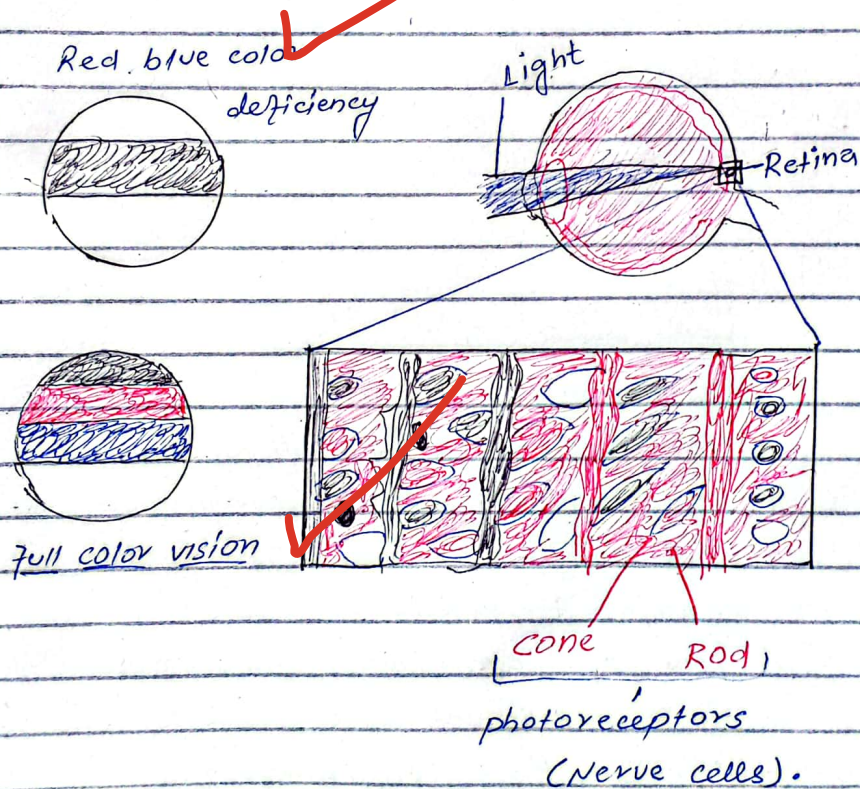 Red blue color
deficiency
Light
Retina
Full color vision
Cone
Rod
photoreceptors
(Nerve cells).